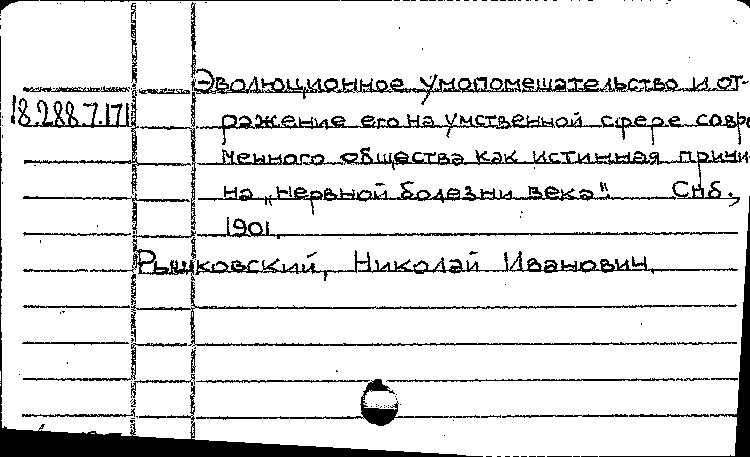 Эволюционное умопомешательство и от-
18.288.7.171
ражение его на умственной сфере совре
менного общества как истинная причи
на „нервной болезни века". Спб.,
1901.
Рышковский, Николай Иванович.